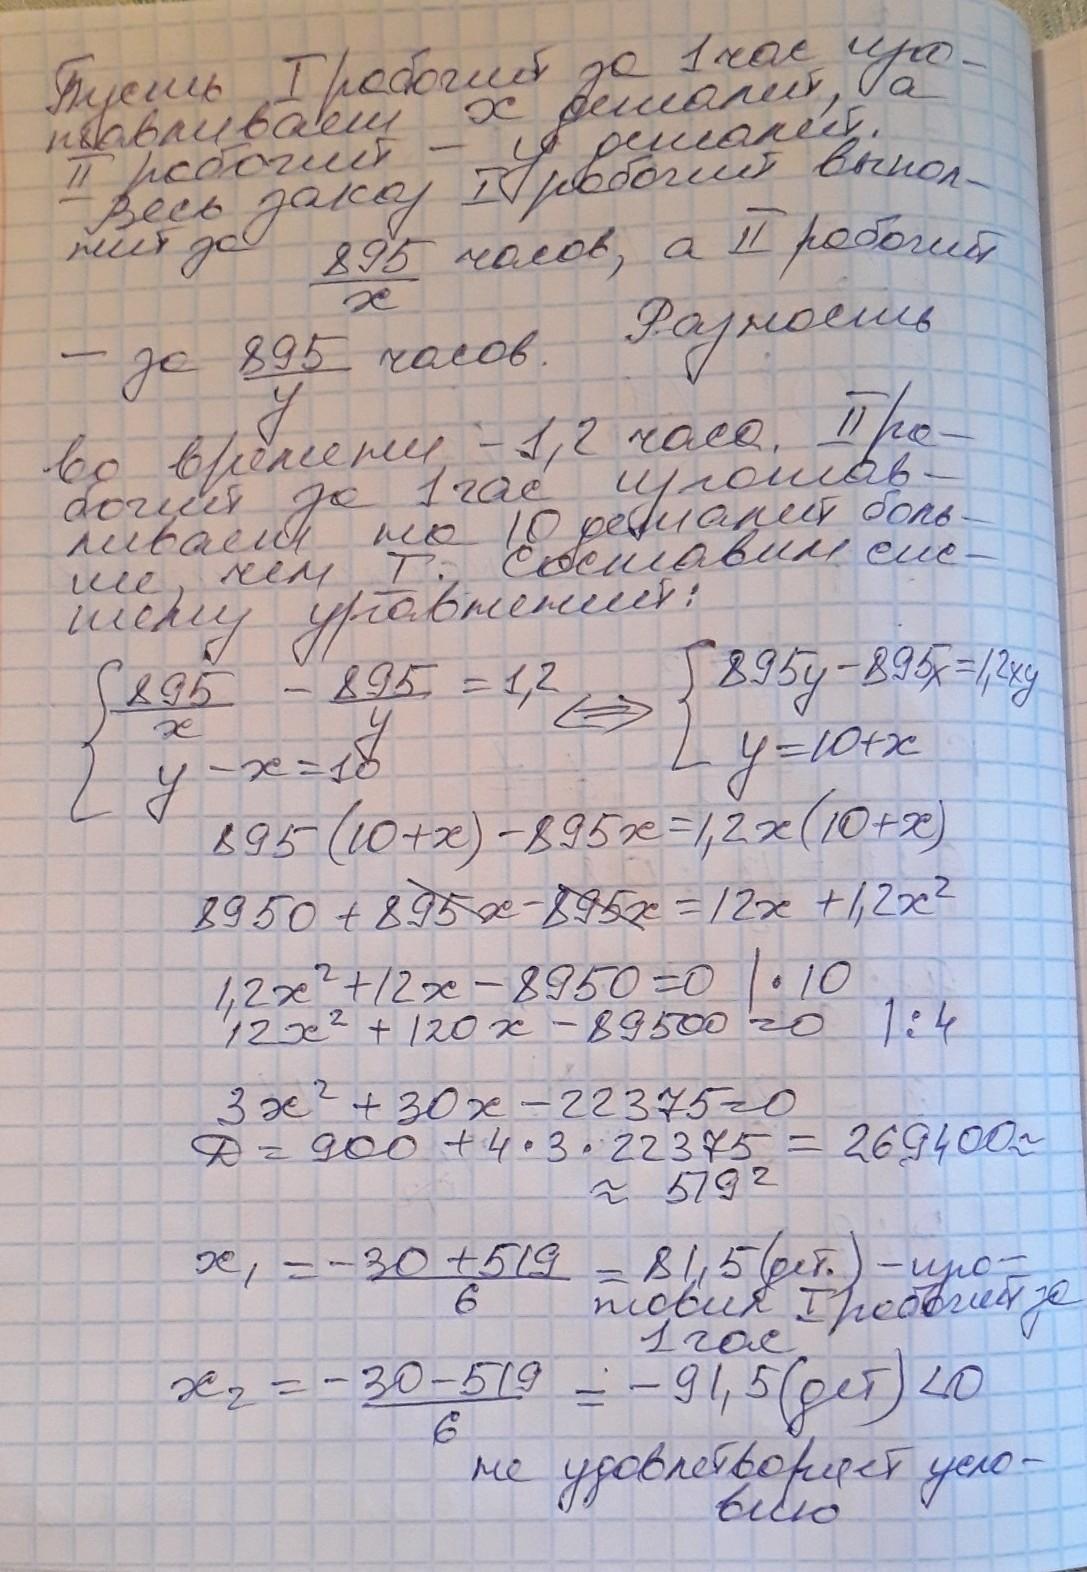 Пусть I рабочий за 1 час изго-
тавливает x деталей, а
II рабочий – y деталей.
Весь заказ I рабочий выпол-
нит за 895/x часов, а II рабочий
– за 895/y часов. Разность
во времени – 1,2 часа. II ра-
бочий за 1 час изготав-
ливает на 10 деталей боль-
ше, чем I. Составим сис-
тему уравнений:
{ 895/x – 895/y = 1,2 <=> { 895y – 895x = 1,2xy
y – x = 10 y = 10 + x
895(10+x) – 895x = 1,2x(10+x)
8950 + 895x – 895x = 12x + 1,2x²
1,2x² + 12x – 8950 = 0 | · 10
12x² + 120x – 89500 = 0 | : 4
3x² + 30x – 22375 = 0
D = 900 + 4·3·22375 = 269400 ≈
≈ 519²
x₁ = (–30 + 519)/6 = 81,5 (дет.) – изго-
товил I рабочий за
1 час
x₂ = (–30 – 519)/6 = –91,5 (дет) < 0
не удовлетворяет усло-
вию